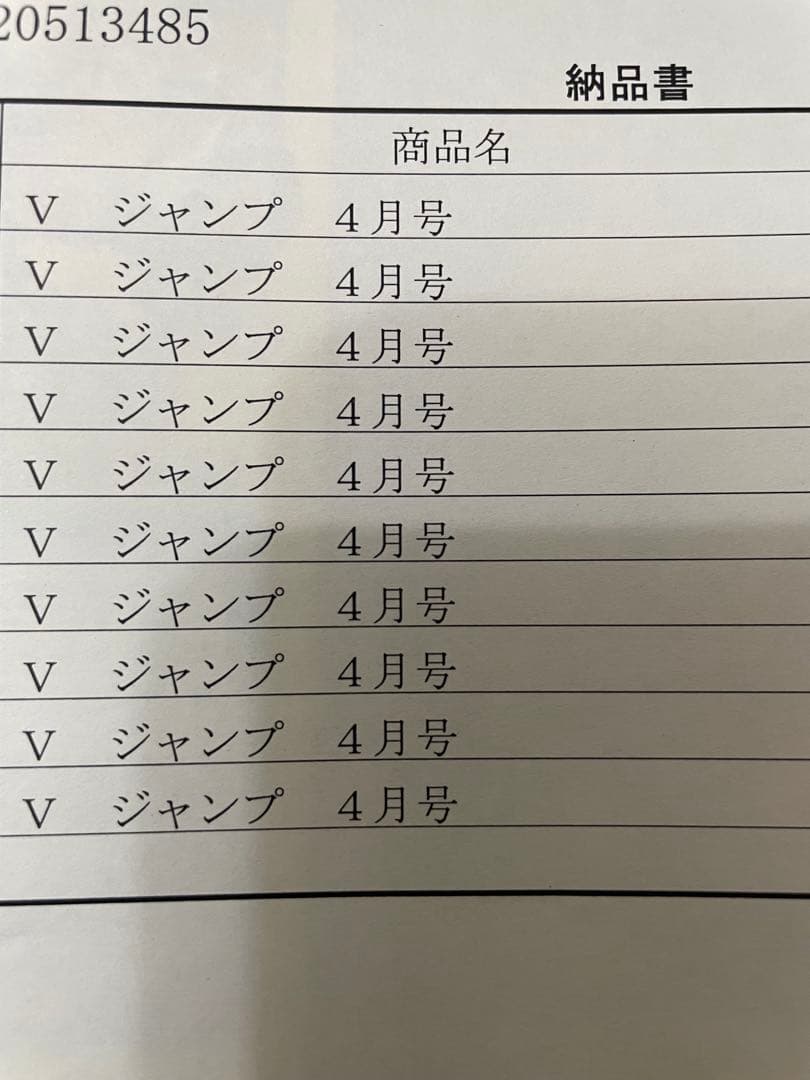 20513485
納品書
商品名
V　ジャンプ　４月号
V　ジャンプ　４月号
V　ジャンプ　４月号
V　ジャンプ　４月号
V　ジャンプ　４月号
V　ジャンプ　４月号
V　ジャンプ　４月号
V　ジャンプ　４月号
V　ジャンプ　４月号
V　ジャンプ　４月号